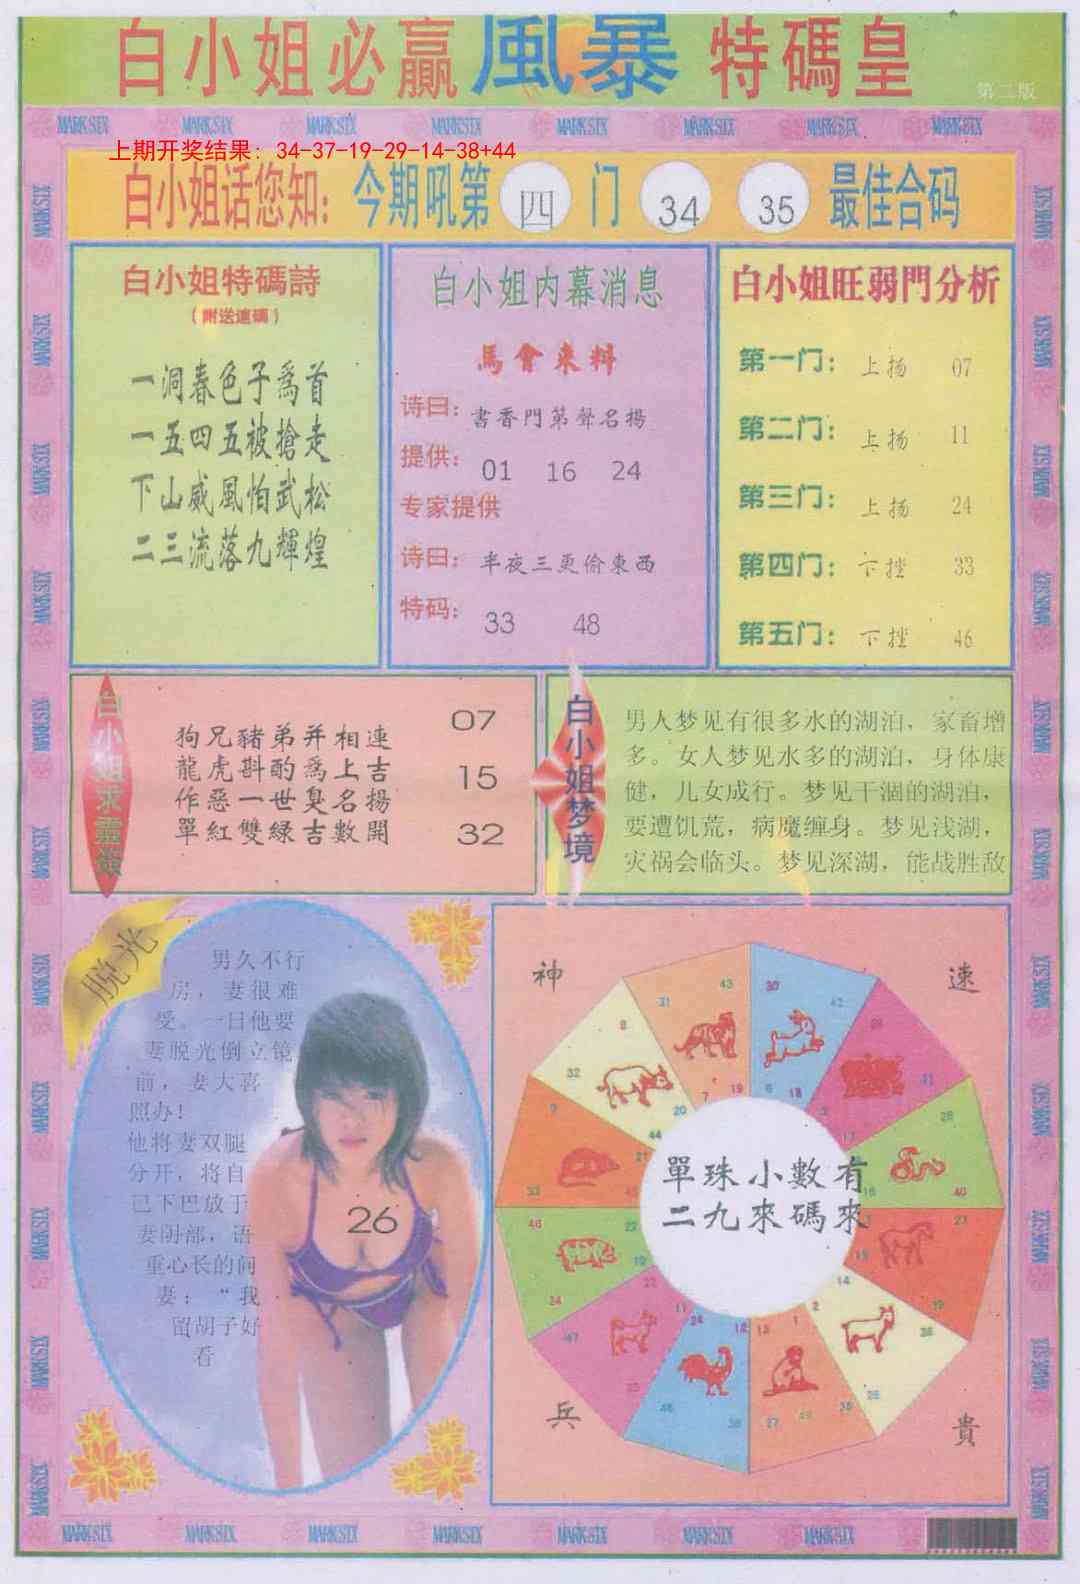 白小姐必赢風暴特碼皇
第二版
MARKSIX MARKSIX MARKSIX MARKSIX MARKSIX MARKSIX MARKSIX MARKSIX
上期开奖结果: 34-37-19-29-14-38+44
白小姐话您知: 今期吼第 四 门 34 35 最佳合码
白小姐特碼詩
(附送連碼)
一洞春色子爲首
一五四五被搶走
下山威風怕武松
二三流落九輝煌
白小姐内幕消息
馬會来料
诗曰: 書香門第聲名揚
提供: 01 16 24
专家提供
诗曰: 半夜三更偷東西
特码: 33 48
白小姐旺弱門分析
第一门: 上扬 07
第二门: 上扬 11
第三门: 上扬 24
第四门: 下挫 33
第五门: 下挫 46
白小姐求靈簽
狗兄豬弟并相連
龍虎斟酌爲上吉
作惡一世臭名揚
單紅雙緑吉數開
07
15
32
白小姐梦境
男人梦见有很多水的湖泊，家畜增
多。女人梦见水多的湖泊，身体康
健，儿女成行。梦见干涸的湖泊，
要遭饥荒，病魔缠身。梦见浅湖，
灾祸会临头。梦见深湖，能战胜敌
脱光
男久不行
房，妻很难
受。一日他要
妻脱光倒立镜
前，妻大喜
照办!
他将妻双腿
分开，将自
己下巴放于
妻阴部，语
重心长的问
妻：“我
留胡子好
看
26
神
速
兵
貴
單珠小數有
二九來碼來
31 43
30 42
8 32
7 19
6 18
20 44
28 40
9 33
46 22
24
27
47
14 38
2
1 13
12 24
27
MARKSIX MARKSIX MARKSIX MARKSIX MARKSIX MARKSIX MARKSIX